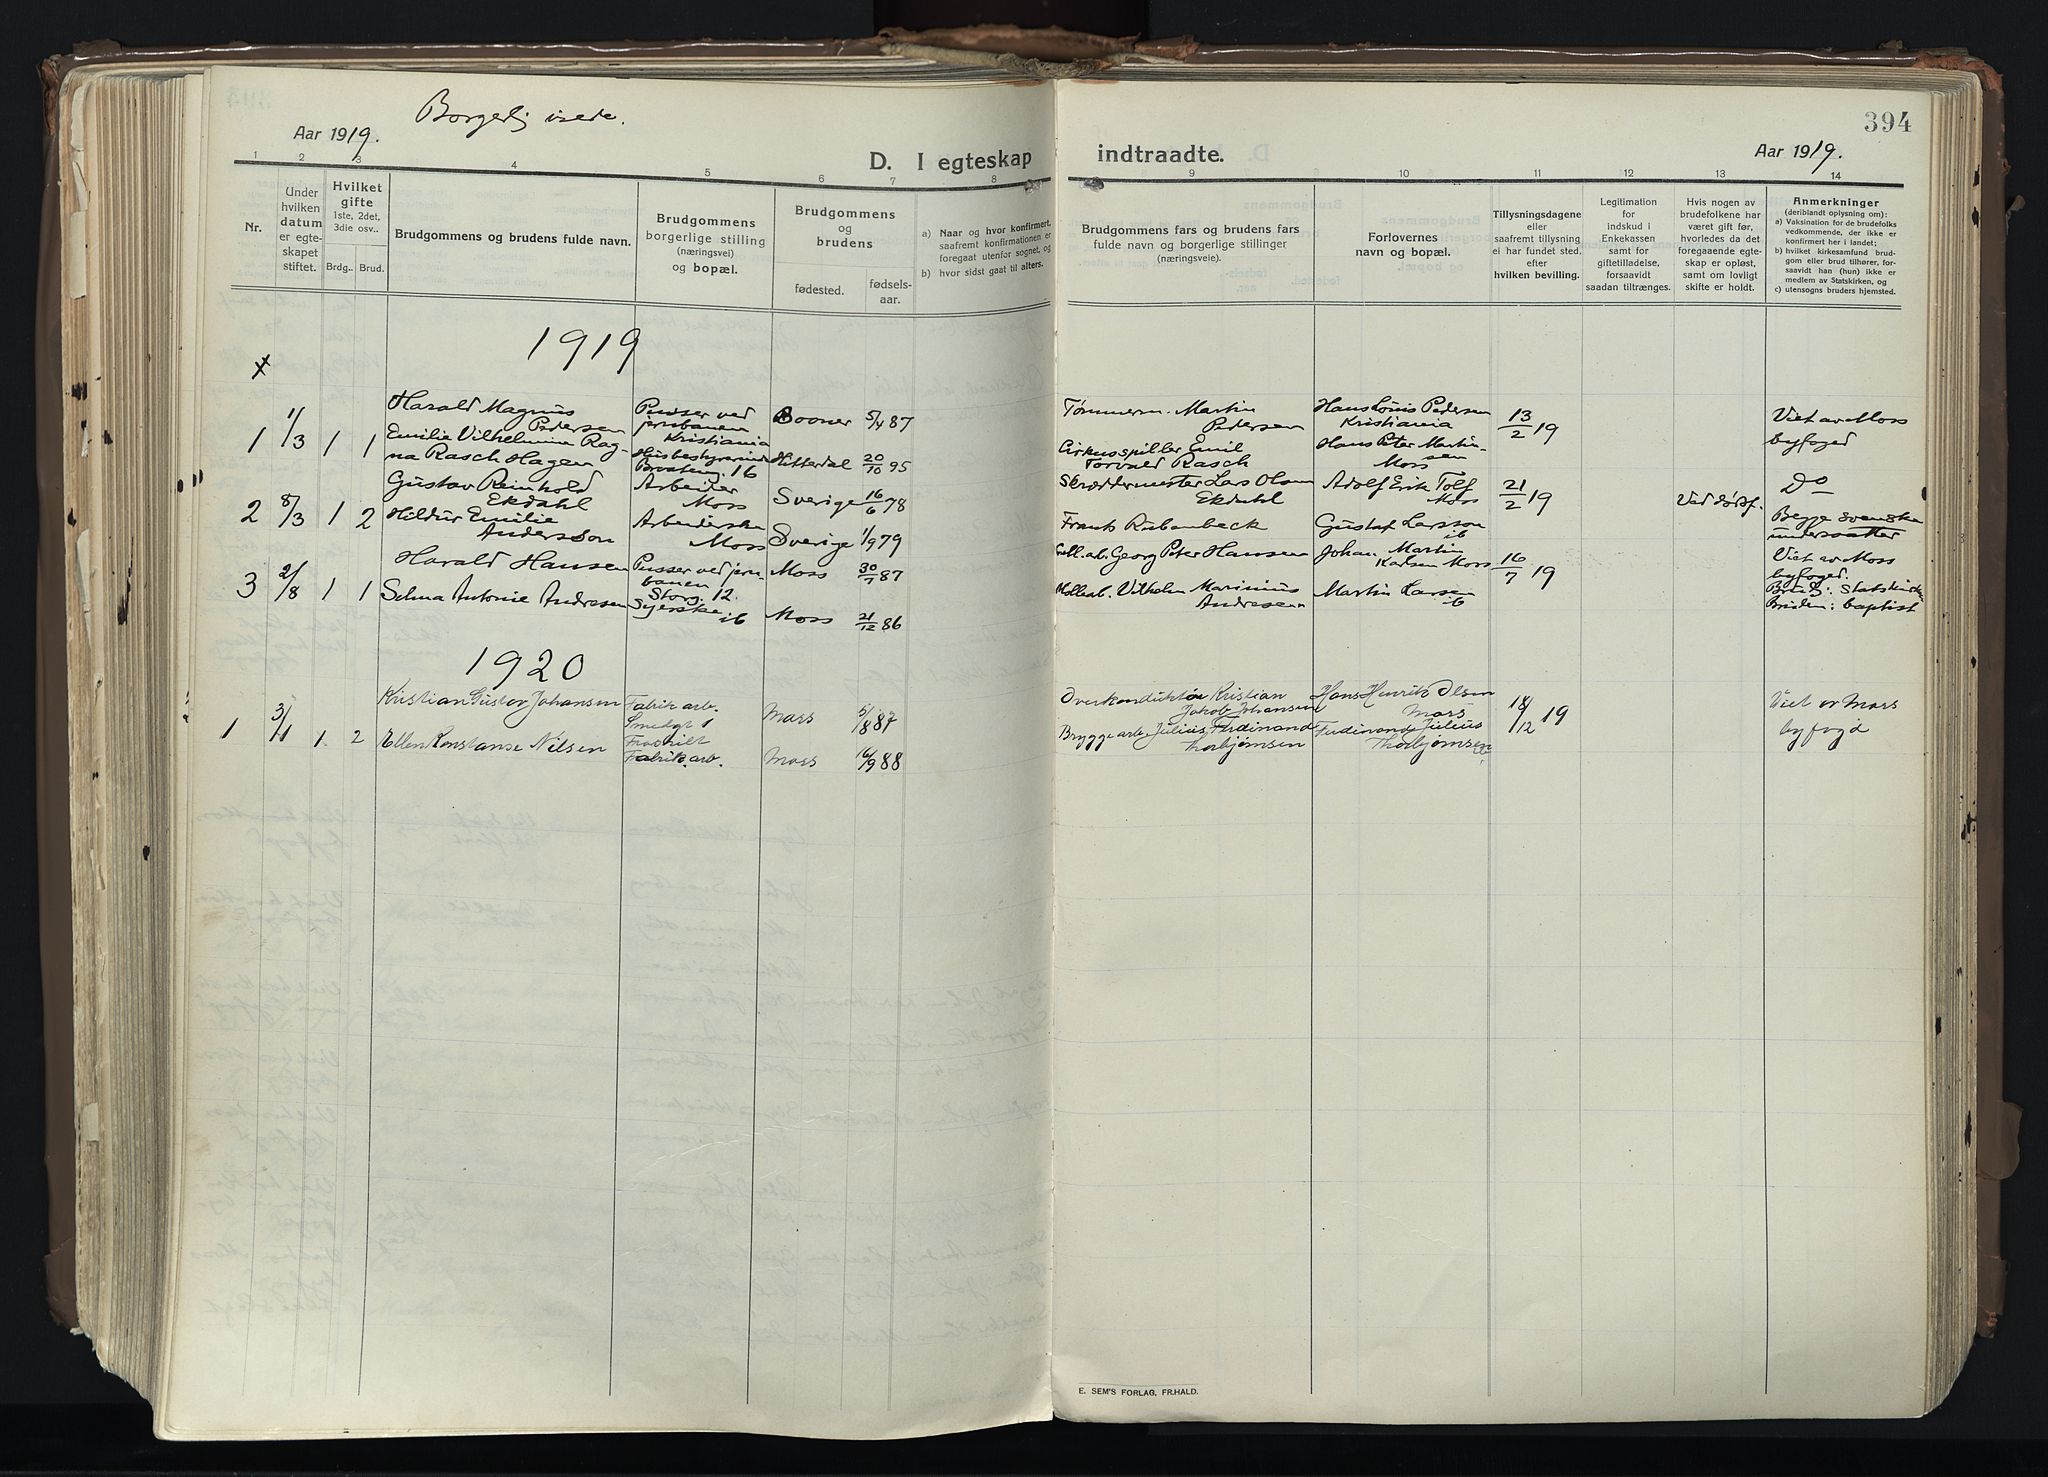 Borgerlig viede.
394
Aar 1919.
D. I egteskap indtraadte.
Aar 1919.
1 2 3 4 5 6 7 8 9 10 11 12 13 14
Nr.
Under
hvilken
datum
er egte-
skapet
stiftet.
Hvilket
gifte
1ste, 2det,
3die osv..
Brdg.. Brud.
Brudgommens og brudens fulde navn.
Brudgommens
borgerlige stilling
(næringsvei)
og bopæl.
Brudgommens
og
brudens
fødested.
fødsels-
aar.
a) Naar og hvor konfirmert,
saafremt konfirmationen er
foregaat utenfor sognet, og
b) hvor sidst gaat til alters.
Brudgommens fars og brudens fars
fulde navn og borgerlige stillinger
(næringsveie).
Forlovernes
navn og bopæl.
Tillysningsdagene
eller
saafremt tillysning
ei har fundet sted.
efter
hvilken bevilling.
Legitimation
for
indskud i
Enkekassen
samt for
giftetilladelse,
forsaavidt
saadan tiltrænges.
Hvis nogen av
brudefolkene har
været gift før,
hvorledes da det
foregaaende egte-
skap er opløst,
samt om lovligt
skifte er holdt.
Anmerkninger
(deriblandt oplysning om):
a) Vaksination for de brudefolks
vedkommende, der ikke er
konfirmert her i landet;
b) hvilket kirkesamfund brud-
gom eller brud tilhører, for-
saavidt han (hun) ikke er
medlem av Statskirken, og
c) utensogns bruders hjemsted.
1919
1 1/3 1 1
Harald Magnus
Pedersen
Emilie Vilhelmine Rag-
na Rasch Hagen
Pudser ved
jernbanen
Kristiania
Husbestyrerinde
16
5/4 87
Hitterdal 20/10 95
Tømmerm. Martin
Pedersen
Cirkusspiller Emil
Torvald Rasch
Hans Louis Pedersen
Kristiania
Hans Peter Martin-
sen
Moss
13/2 19
Viet av Moss
byfoged
2 8/3 1 2
Gustav Reinhold
Ekdahl
Hildur Emilie
Andersson
Arbeider
Moss
Arbeiderske
Moss
Sverige 16/6 78
Sverige 1/9 79
Skræddermester Lars Olsen
Ekdahl
Frants Rubenbeck
Adolf Erik Tolf
Moss
Gustaf Larsson
ib
21/2 19
Ved dødsf.
Do
Begge svenske
undersaatter
3 2/8 1 1
Harald Hansen
Selma Antonie Andresen
Pudser ved jern-
banen
Storg. 12.
Syerske ib
Moss 87
Moss 21/12 86
Georg Peter Hansen
Mølleab. Vilhelm Marinius
Andresen
Johan Martin
Karlsen Moss
Martin Larsen
ib
16/7 19
Viet av Moss
byfoged.
Brudg: Statskirken
Bruden: baptist
1920
1 3/1 1. 2
Kristian Gustav Johansen
Ellen Konstanse Nilsen
Fabrik arb.
Smedgt 1
Fraskilt
Fabrik. arb.
Moss 5/8 87
Moss 16/9 88
Overkonduktør Kristian
Jakob Johansen
Bryggearb. Julius Ferdinand
Thorbjørnsen
Hans Henrik Olsen
Moss
Ferdinand Julius
Thorbjørnsen
ib
18/12 19
Viet av Moss
byfogd
E. SEM'S FORLAG, FR.HALD.